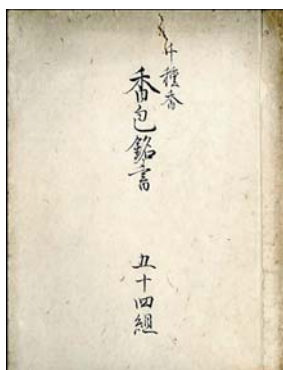 種香
香包銘書
五十四組